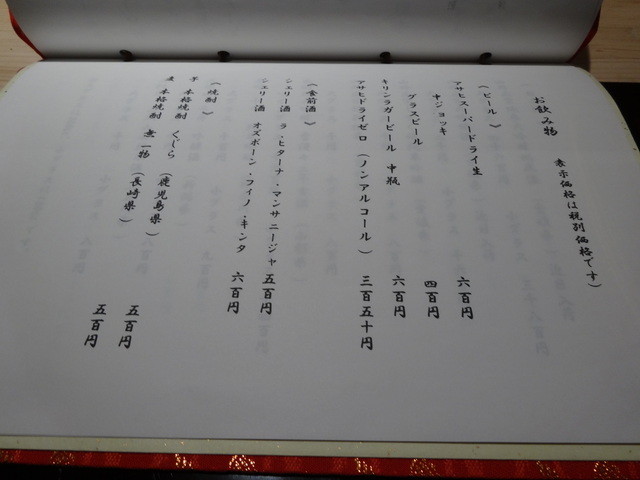 お飲み物　表示価格は税別価格です）
（ビール》
アサヒスーパードライ生
中ジョッキ　六百円
グラスビール　四百円
キリンラガービール　中瓶　六百円
アサヒドライゼロ（ノンアルコール）　三百五十円
《食前酒》
シェリー酒　ラ・ヒターナ・マンサニージャ　五百円
シェリー酒　オズボーン・フィノ・キンタ　六百円
《焼酎》
芋　本格焼酎　くじら　（鹿児島県）　五百円
麦　本格焼酎　無一物　（長崎県）　五百円